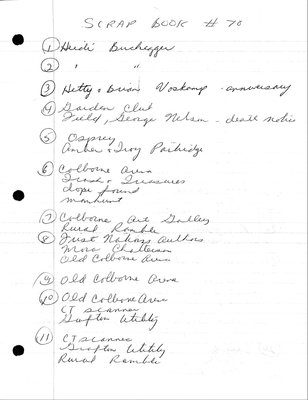 SCRAP BOOK # 70
1 Heidi Buchegger
2 " "
3 Hetty & Brian Voskamp - anniversary
4 Garden Club
Field, George Nelson - death notice
5 Osprey
Amber & Troy Partridge
6 Colborne Arena
Trash & Treasures
dope found
manhunt
7 Colborne Art Gallery
Rural Ramble
8 Just Authors
More Chatterson
Old Colborne Arena
9 Old Colborne Arena
10 Old Colborne Arena
CT scanner
Grafton Utility
11 CT scanner
Grafton Utility
Rural Ramble